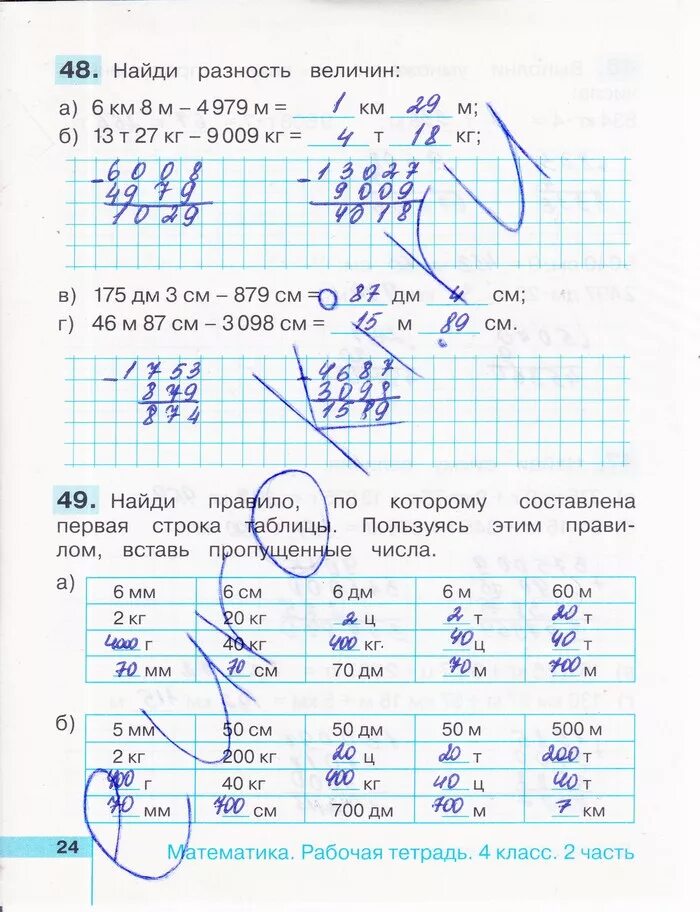 48. Найди разность величин:
а) 6 км 8 м – 4 979 м = 1 км 29 м;
б) 13 т 27 кг – 9 009 кг = 4 т 18 кг;
– 6008 – 13027
4979 9009
1029 4018
в) 175 дм 3 см – 879 см = 87 дм 4 см;
г) 46 м 87 см – 3 098 см = 15 м 89 см.
– 1753 – 4687
879 3098
874 1589
49. Найди правило, по которому составлена
первая строка таблицы. Пользуясь этим прави-
лом, вставь пропущенные числа.
а)
6 мм 6 см 6 дм 6 м 60 м
2 кг 20 кг 2 ц 2 т 20 т
4000 г 40 кг 400 кг 40 ц 40 т
70 мм 70 см 70 дм 70 м 700 м
б)
5 мм 50 см 50 дм 50 м 500 м
2 кг 200 кг 20 ц 20 т 200 т
400 г 40 кг 400 кг 40 ц 40 т
70 мм 700 см 700 дм 700 м 7 км
24 Математика. Рабочая тетрадь. 4 класс. 2 часть